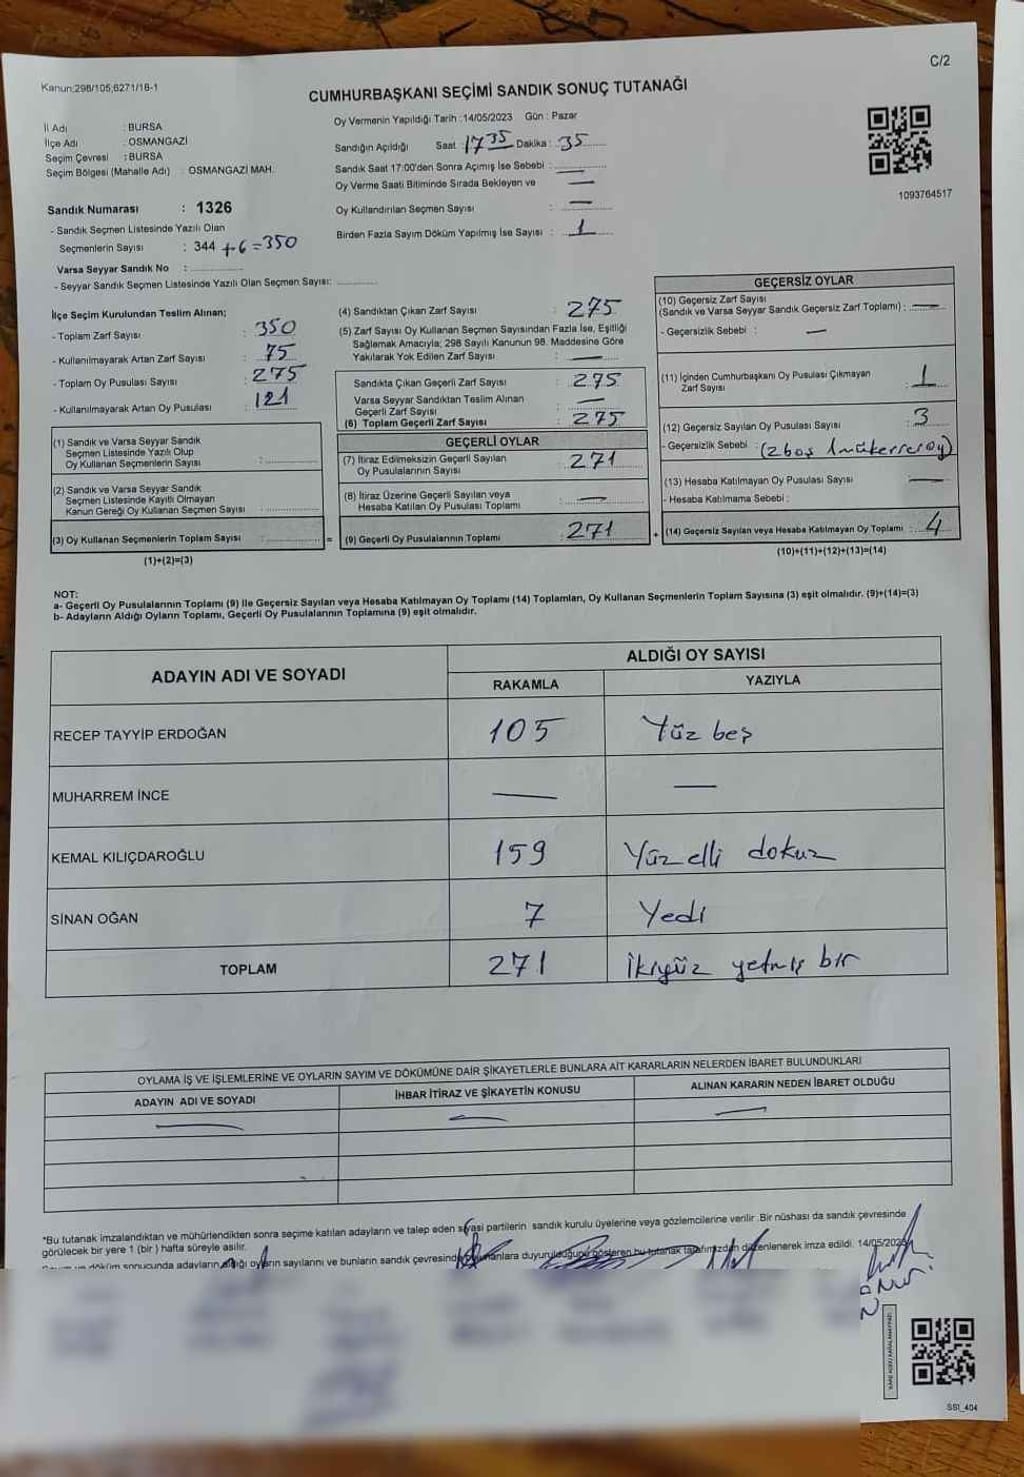 C/2
Kanun:298/105;6271/18-1
CUMHURBAŞKANI SEÇİMİ SANDIK SONUÇ TUTANAĞI
İl Adı : BURSA
İlçe Adı : OSMANGAZİ
Seçim Çevresi : BURSA
Seçim Bölgesi (Mahalle Adı) : OSMANGAZİ MAH.
Sandık Numarası : 1326
- Sandık Seçmen Listesinde Yazılı Olan
Seçmenlerin Sayısı : 344 +6=350
Varsa Seyyar Sandık No :
- Seyyar Sandık Seçmen Listesinde Yazılı Olan Seçmen Sayısı:
Oy Vermenin Yapıldığı Tarih :14/05/2023 Gün : Pazar
Sandığın Açıldığı Saat : 1735 Dakika : 35
Sandık Saat 17:00'den Sonra Açımış İse Sebebi : —
Oy Verme Saati Bitiminde Sırada Bekleyen ve —
Oy Kullandırılan Seçmen Sayısı : —
Birden Fazla Sayım Döküm Yapılmış İse Sayısı : 1
1093764517
İlçe Seçim Kurulundan Teslim Alınan;
- Toplam Zarf Sayısı : 350
- Kullanılmayarak Artan Zarf Sayısı : 75
- Toplam Oy Pusulası Sayısı : 275
- Kullanılmayarak Artan Oy Pusulası : 121
(1) Sandık ve Varsa Seyyar Sandık
Seçmen Listesinde Yazılı Olup
Oy Kullanan Seçmenlerin Sayısı :
(2) Sandık ve Varsa Seyyar Sandık
Seçmen Listesinde Kayıtlı Olmayan
Kanun Gereği Oy Kullanan Seçmen Sayısı :
(3) Oy Kullanan Seçmenlerin Toplam Sayısı : =
(1)+(2)=(3)
(4) Sandıktan Çıkan Zarf Sayısı : 275
(5) Zarf Sayısı Oy Kullanan Seçmen Sayısından Fazla İse, Eşitliği
Sağlamak Amacıyla; 298 Sayılı Kanunun 98. Maddesine Göre
Yakılarak Yok Edilen Zarf Sayısı : —
Sandıkta Çıkan Geçerli Zarf Sayısı : 275
Varsa Seyyar Sandıktan Teslim Alınan
Geçerli Zarf Sayısı : —
(6) Toplam Geçerli Zarf Sayısı : 275
GEÇERLİ OYLAR
(7) İtiraz Edilmeksizin Geçerli Sayılan
Oy Pusulalarının Sayısı : 271
(8) İtiraz Üzerine Geçerli Sayılan veya
Hesaba Katılan Oy Pusulası Toplamı : —
(9) Geçerli Oy Pusulalarının Toplamı : 271 +
GEÇERSİZ OYLAR
(10) Geçersiz Zarf Sayısı
(Sandık ve Varsa Seyyar Sandık Geçersiz Zarf Toplamı) : —
- Geçersizlik Sebebi : —
(11) İçinden Cumhurbaşkanı Oy Pusulası Çıkmayan
Zarf Sayısı : 1
(12) Geçersiz Sayılan Oy Pusulası Sayısı : 3
- Geçersizlik Sebebi : (2 boş 1 mükerrer oy)
(13) Hesaba Katılmayan Oy Pusulası Sayısı : —
- Hesaba Katılmama Sebebi :
(14) Geçersiz Sayılan veya Hesaba Katılmayan Oy Toplamı : 4
(10)+(11)+(12)+(13)=(14)
NOT:
a- Geçerli Oy Pusulalarının Toplamı (9) ile Geçersiz Sayılan veya Hesaba Katılmayan Oy Toplamı (14) Toplamları, Oy Kullanan Seçmenlerin Toplam Sayısına (3) eşit olmalıdır. (9)+(14)=(3)
b- Adayların Aldığı Oyların Toplamı, Geçerli Oy Pusulalarının Toplamına (9) eşit olmalıdır.
ADAYIN ADI VE SOYADI
ALDIĞI OY SAYISI
RAKAMLA YAZIYLA
RECEP TAYYİP ERDOĞAN 105 Yüz beş
MUHARREM İNCE — —
KEMAL KILIÇDAROĞLU 159 Yüz elli dokuz
SİNAN OĞAN 7 Yedi
TOPLAM 271 İkiyüz yetmiş bir
OYLAMA İŞ VE İŞLEMLERİNE VE OYLARIN SAYIM VE DÖKÜMÜNE DAİR ŞİKAYETLERLE BUNLARA AİT KARARLARIN NELERDEN İBARET BULUNDUKLARI
ADAYIN ADI VE SOYADI İHBAR İTİRAZ VE ŞİKAYETİN KONUSU ALINAN KARARIN NEDEN İBARET OLDUĞU
— — —
*Bu tutanak imzalandıktan ve mühürlendikten sonra seçime katılan adayların ve talep eden siyasi partilerin sandık kurulu üyelerine veya gözlemcilerine verilir. Bir nüshası da sandık çevresinde
görülecek bir yere 1 (bir) hafta süreyle asılır.
Sayım ve döküm sonucunda adayların aldığı oyların sayılarını ve bunların sandık çevresinde ilanlara duyurulduğunu gösteren bu tutanak tarafımızdan düzenlenerek imza edildi. 14/05/2023
SSI_404